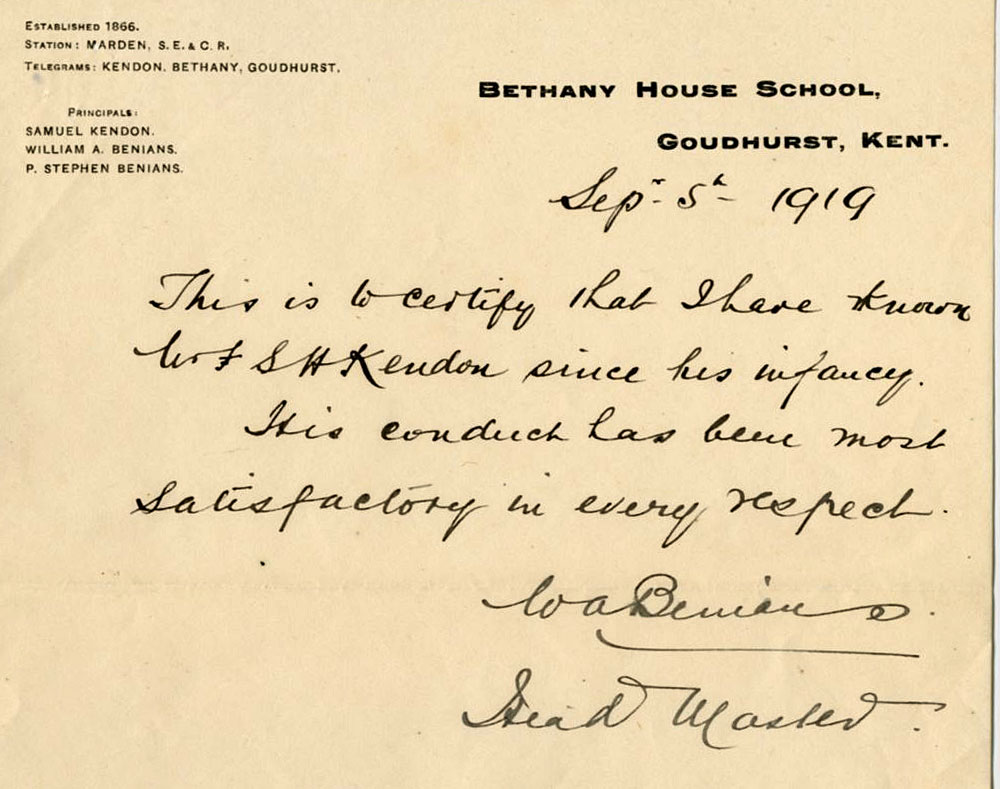 ESTABLISHED 1866.
STATION: MARDEN, S.E. & C.R.
TELEGRAMS: KENDON, BETHANY, GOUDHURST.
PRINCIPALS:
SAMUEL KENDON.
WILLIAM A. BENIANS.
P. STEPHEN BENIANS.
BETHANY HOUSE SCHOOL,
GOUDHURST, KENT.
Sepr. 5th 1919
This is to certify that I have known
Mr F S H Kendon since his infancy.
His conduct has been most
satisfactory in every respect.
W A Benians.
Head Master.